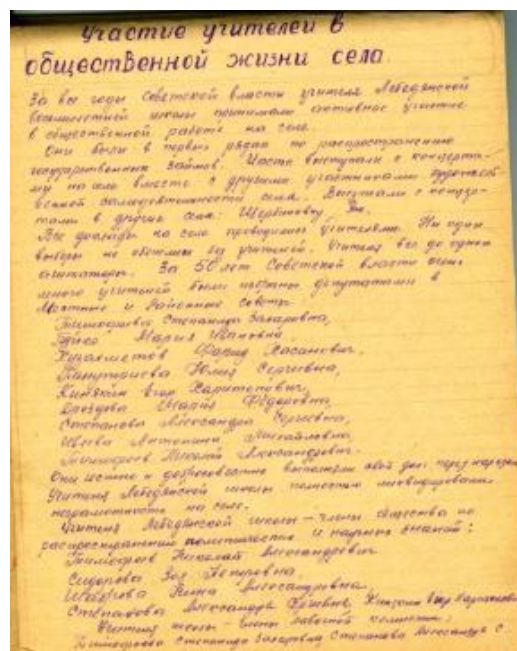 Участие учителей в
общественной жизни села.
За все годы Советской власти учителя Лебедянской
восьмилетней школы принимали активное участие
в общественной работе на селе.
Они были в первых рядах по распространению
государственных займов. Часто выступали с концерта-
ми на селе вместе с другими участниками художест-
венной самодеятельности села. Выезжали с концер-
тами в другие села: Щербиновку
Все доклады на селе проводились учителями. Ни одни
выборы не обходились без учителей. Учителя все до одного
агитаторы. За 50 лет Советской власти очень
много учителей были избраны депутатами в
Местные и Районные советы.
Тимофеева Степанида Захаровна,
Мария Ивановна,
Фарид Хасанович,
Юлия Сергеевна,
Кинякин Егор Харитонович,
Дроздова Мария Фёдоровна,
Степанова Александра Сергеевна,
Антонина Михайловна,
Тимофеев Николай Александрович.
Они честно и добросовестно выполняли свой долг перед народом
Учителя Лебедянской школы полностью ликвидировали
неграмотность на селе.
Учителя Лебедянской школы – члены общества по
распространению политических и научных знаний:
Тимофеев Николай Александрович
Сидорова Зоя Петровна,
Нина Александровна,
Степанова Александра Кинякин Егор Харитонович
Учителя школы – члены
Тимофеева Степанида Захаровна, Степанова Александра С.